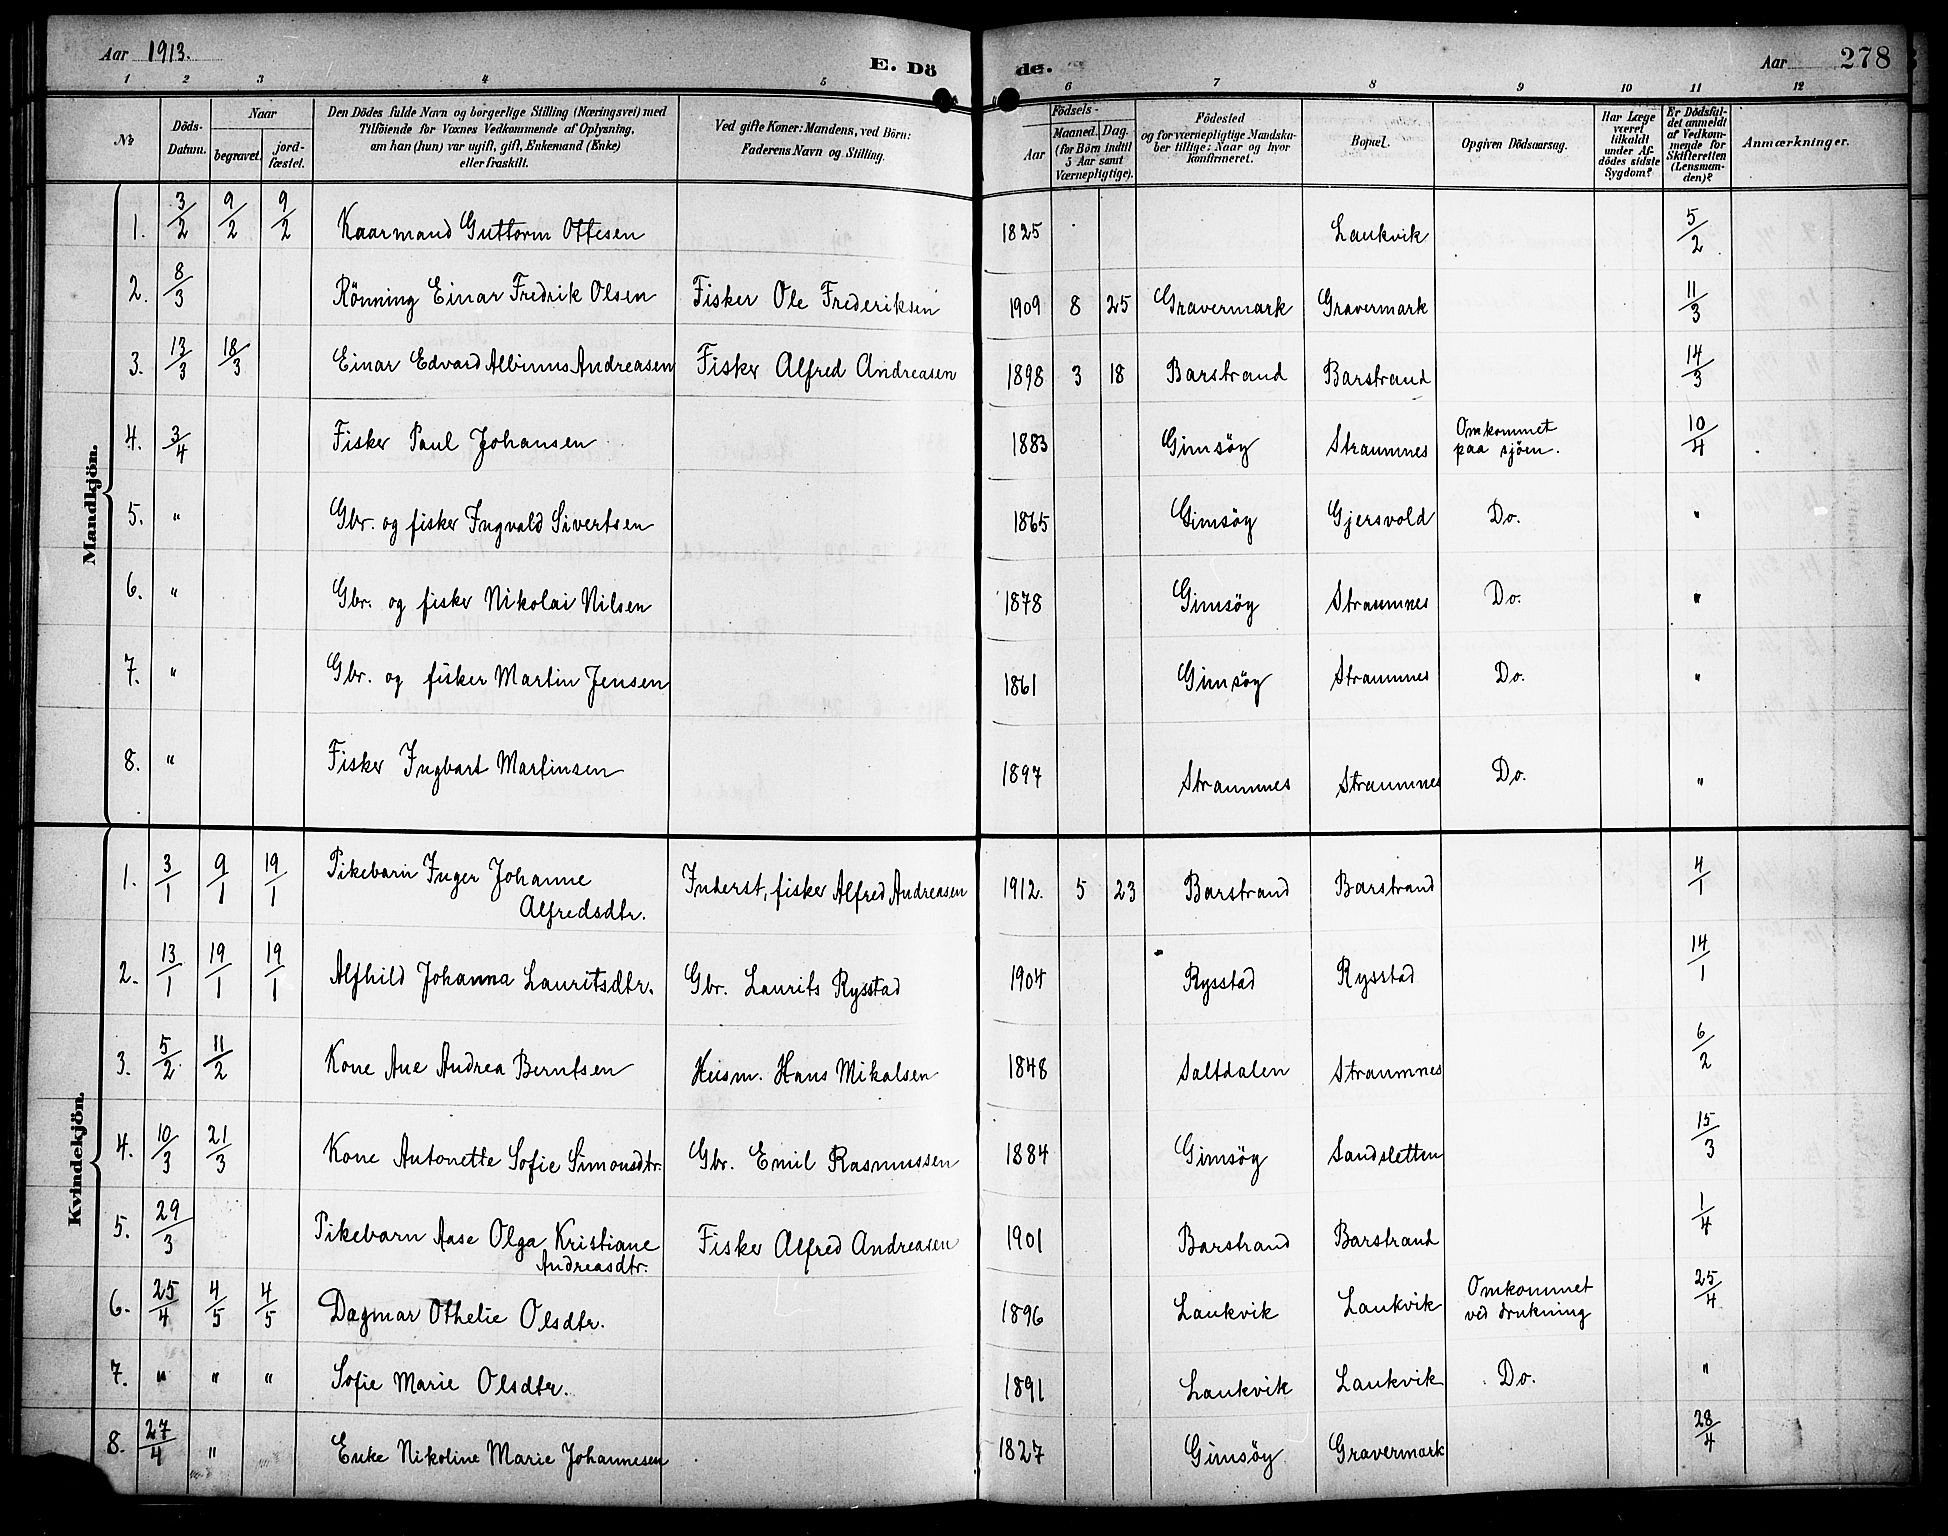 Aar 1913.
E. Dö
de.
Aar
278
1 2 3 4 5 6 7 8 9 10 11 12
No
Döds-
Datum.
Naar
begravet.
jord-
fæstet.
Den Dödes fulde Navn og borgerlige Stilling (Næringsvei) med
Tilföiende for Voxnes Vedkommende af Oplysning,
om han (hun) var ugift, gift, Enkemand (Enke)
eller fraskilt.
Ved gifte Koner: Mandens, ved Börn:
Faderens Navn og Stilling.
Födsels-
Aar
Maaned. Dag.
(for Börn indtil
5 Aar samt
Værnepligtige).
Födested
og for værnepligtige Mandska-
ber tillige: Naar og hvor
konfirmeret.
Bopæl.
Opgiven Dödsaarsag.
Har Læge
været
tilkaldt
under Af-
dödes sidste
Sygdom?
Er Dödsfal-
det anmeldt
af Vedkom-
mende for
Skifteretten
(Lensman-
den)?
Anmærkninger.
Mandkjön.
1. 3/2 9/2 9/2 Kaarmand Guttorm Ottesen 1825 Laukvik 5/2
2. 8/3 Rönning Einar Fredrik Olsen Fisker Ole Frederiksen 1909 8 25 Gravermark Gravermark 11/3
3. 13/3 18/3 Einar Edvard Albinus Andreasen Fisker Alfred Andreasen 1898 3 18 Barstrand Barstrand 14/3
4. 3/4 Fisker Paul Johansen 1883 Gimsöy Straumnes Omkommet
paa sjöen. 10/4
5. " Gbr. og fisker Ingvald Sivertsen 1865 Gimsöy Gjersvold Do. "
6. " Gbr. og fisker Nikolai Nilsen 1878 Gimsöy Straumnes Do. "
7. " Gbr. og fisker Martin Jensen 1861 Gimsöy Straumnes Do. "
8. " Fisker Ingbart Martinsen 1897 Straumnes Straumnes Do. "
Kvindekjön.
1. 3/1 9/1 19/1 Pikebarn Inger Johanne
Alfredsdtr. Inderst, fisker Alfred Andreasen 1912. 5 23 Barstrand Barstrand 4/1
2. 13/1 19/1 19/1 Alfhild Johanna Lauritsdtr. Gbr. Laurits Rysstad 1904 Rysstad Rysstad 14/1
3. 5/2 11/2 Kone Ane Andrea Berntsen Husm. Hans Mikalsen 1848 Saltdalen Straumnes 6/2
4. 10/3 21/3 Kone Antonette Sofie Simonsdtr. Gbr. Emil Rasmussen 1884 Gimsöy Sandsletten 15/3
5. 29/3 Pikebarn Aase Olga Kristiane
Andreasdtr. Fisker Alfred Andreasen 1901 Barstrand Barstrand 1/4
6. 25/4 4/5 4/5 Dagmar Othelie Olsdtr. 1896 Laukvik Laukvik Omkommet
ved drukning 25/4
7. " " " Sofie Marie Olsdtr. 1891 Laukvik Laukvik Do. "
8. 27/4 " Enke Nikoline Marie Johannesen 1827 Gimsöy Gravermark 28/4